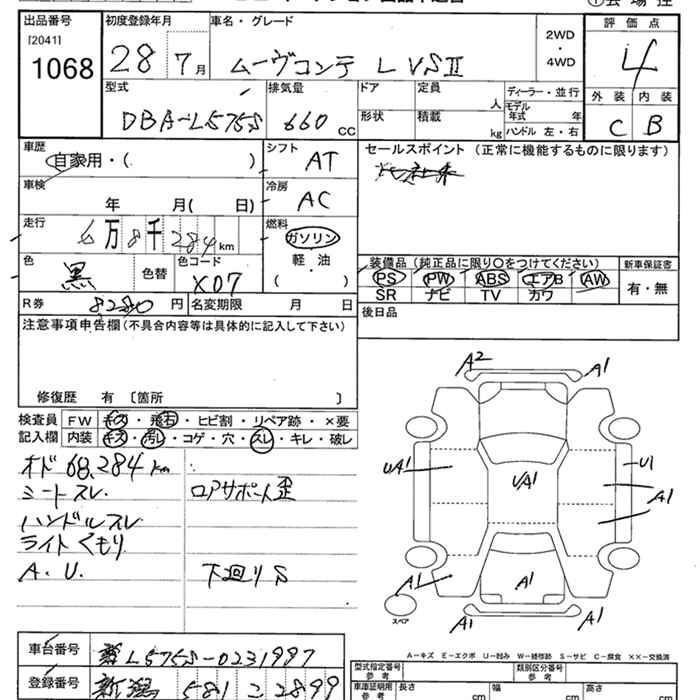 出品番号 初度登録年月 車名・グレード 評価点
[2041] 2WD
1068 28年7月 ムーヴコンテ L VSⅡ ・ 4
4WD
型式 排気量 ドア 定員 人 ディーラー・並行 外装 内装
DBA-L575S 660 CC 形状 積載 kg モデル年式 年 C B
ハンドル 左・右
車歴 シフト セールスポイント (正常に機能するものに限ります)
自家用・( ) AT
車検 冷房
年 月( 日) AC
走行 燃料
6万8千284km ガソリン
色 色替 色コード 軽・油 装備品(純正品に限り○をつけてください) 新車保証書
黒 X07 ( ) PS PW ABS エアB AW 有・無
SR ナビ TV カワ
R券 8280 円 名変期限 月 日 後日品
注意事項申告欄(不具合内容等は具体的に記入して下さい)
修復歴 有 〔箇所 〕
検査員 FW キズ・飛石・ヒビ割・リペア跡・×要
記入欄 内装 キズ・汚レ・コゲ・穴・スレ・キレ・破レ
オド 68,284 km
シートスレ ロアサポート歪
ハンドルスレ
ライトくもり
A.U. 下廻りS
A2 A1
UA1 U/A1 U1
A1
A1 A1
A1 A1
スペア
A-キズ E-エクボ U-凹み W-補修跡 S-サビ C-腐食 ××-交換済
車台番号 L575S-0231997 型式指定番号 類別区分番号
参考 参考
登録番号 新潟 581 こ 2899 車庫証明用 長さ cm 幅 cm 高さ cm
参考